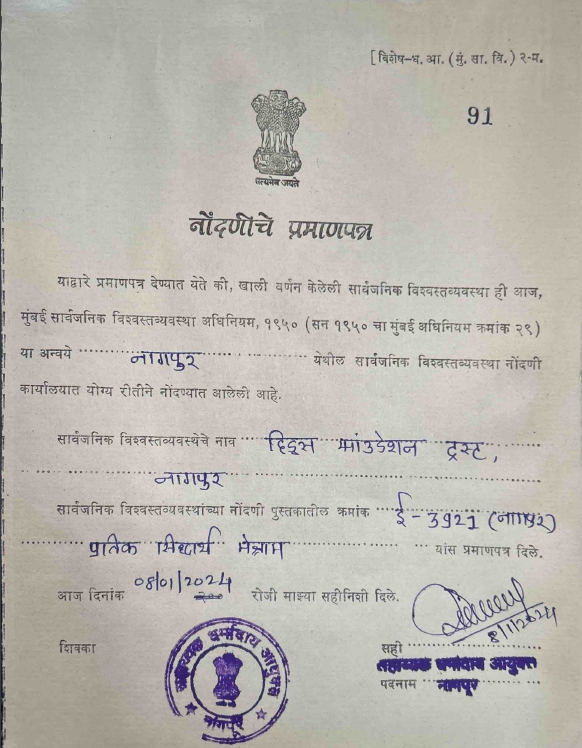 [विशेष-ध. आ. (मुं. सा. वि.) २-म.
91
सत्यमेव जयते
नोंदणीचे प्रमाणपत्र
याद्वारे प्रमाणपत्र देण्यात येते की, खाली वर्णन केलेली सार्वजनिक विश्वस्तव्यवस्था ही आज,
मुंबई सार्वजनिक विश्वस्तव्यवस्था अधिनियम, १९५० (सन १९५० चा मुंबई अधिनियम क्रमांक २९)
या अन्वये नागपुर येथील सार्वजनिक विश्वस्तव्यवस्था नोंदणी
कार्यालयात योग्य रीतीने नोंदण्यात आलेली आहे.
सार्वजनिक विश्वस्तव्यवस्थेचे नाव फाउंडेशन ट्रस्ट,
नागपुर
सार्वजनिक विश्वस्तव्यवस्थांच्या नोंदणी पुस्तकातील क्रमांक ई-3921 (नागपुर)
प्रतिक सिध्दार्थ मेश्राम यांस प्रमाणपत्र दिले.
आज दिनांक 08/01/2024 रोजी माझ्या सहीनिशी दिले.
8/1/2024
शिक्का
सही
सहाय्यक धर्मादाय आयुक्त
पदनाम नागपूर
सहाय्यक धर्मादाय आयुक्त
नागपूर